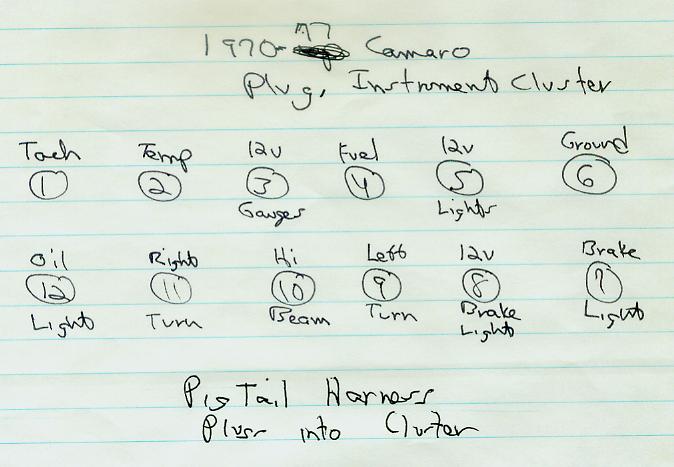 1970-77 Camaro
Plug, Instrument Cluster
Tach Temp 12v Fuel 12v Ground
1 2 3 4 5 6
Gauges Lights
Oil Right Hi Left 12v Brake
12 11 10 9 8 7
Light Turn Beam Turn Brake Light
Light
PigTail Harness
Plugs into Cluster